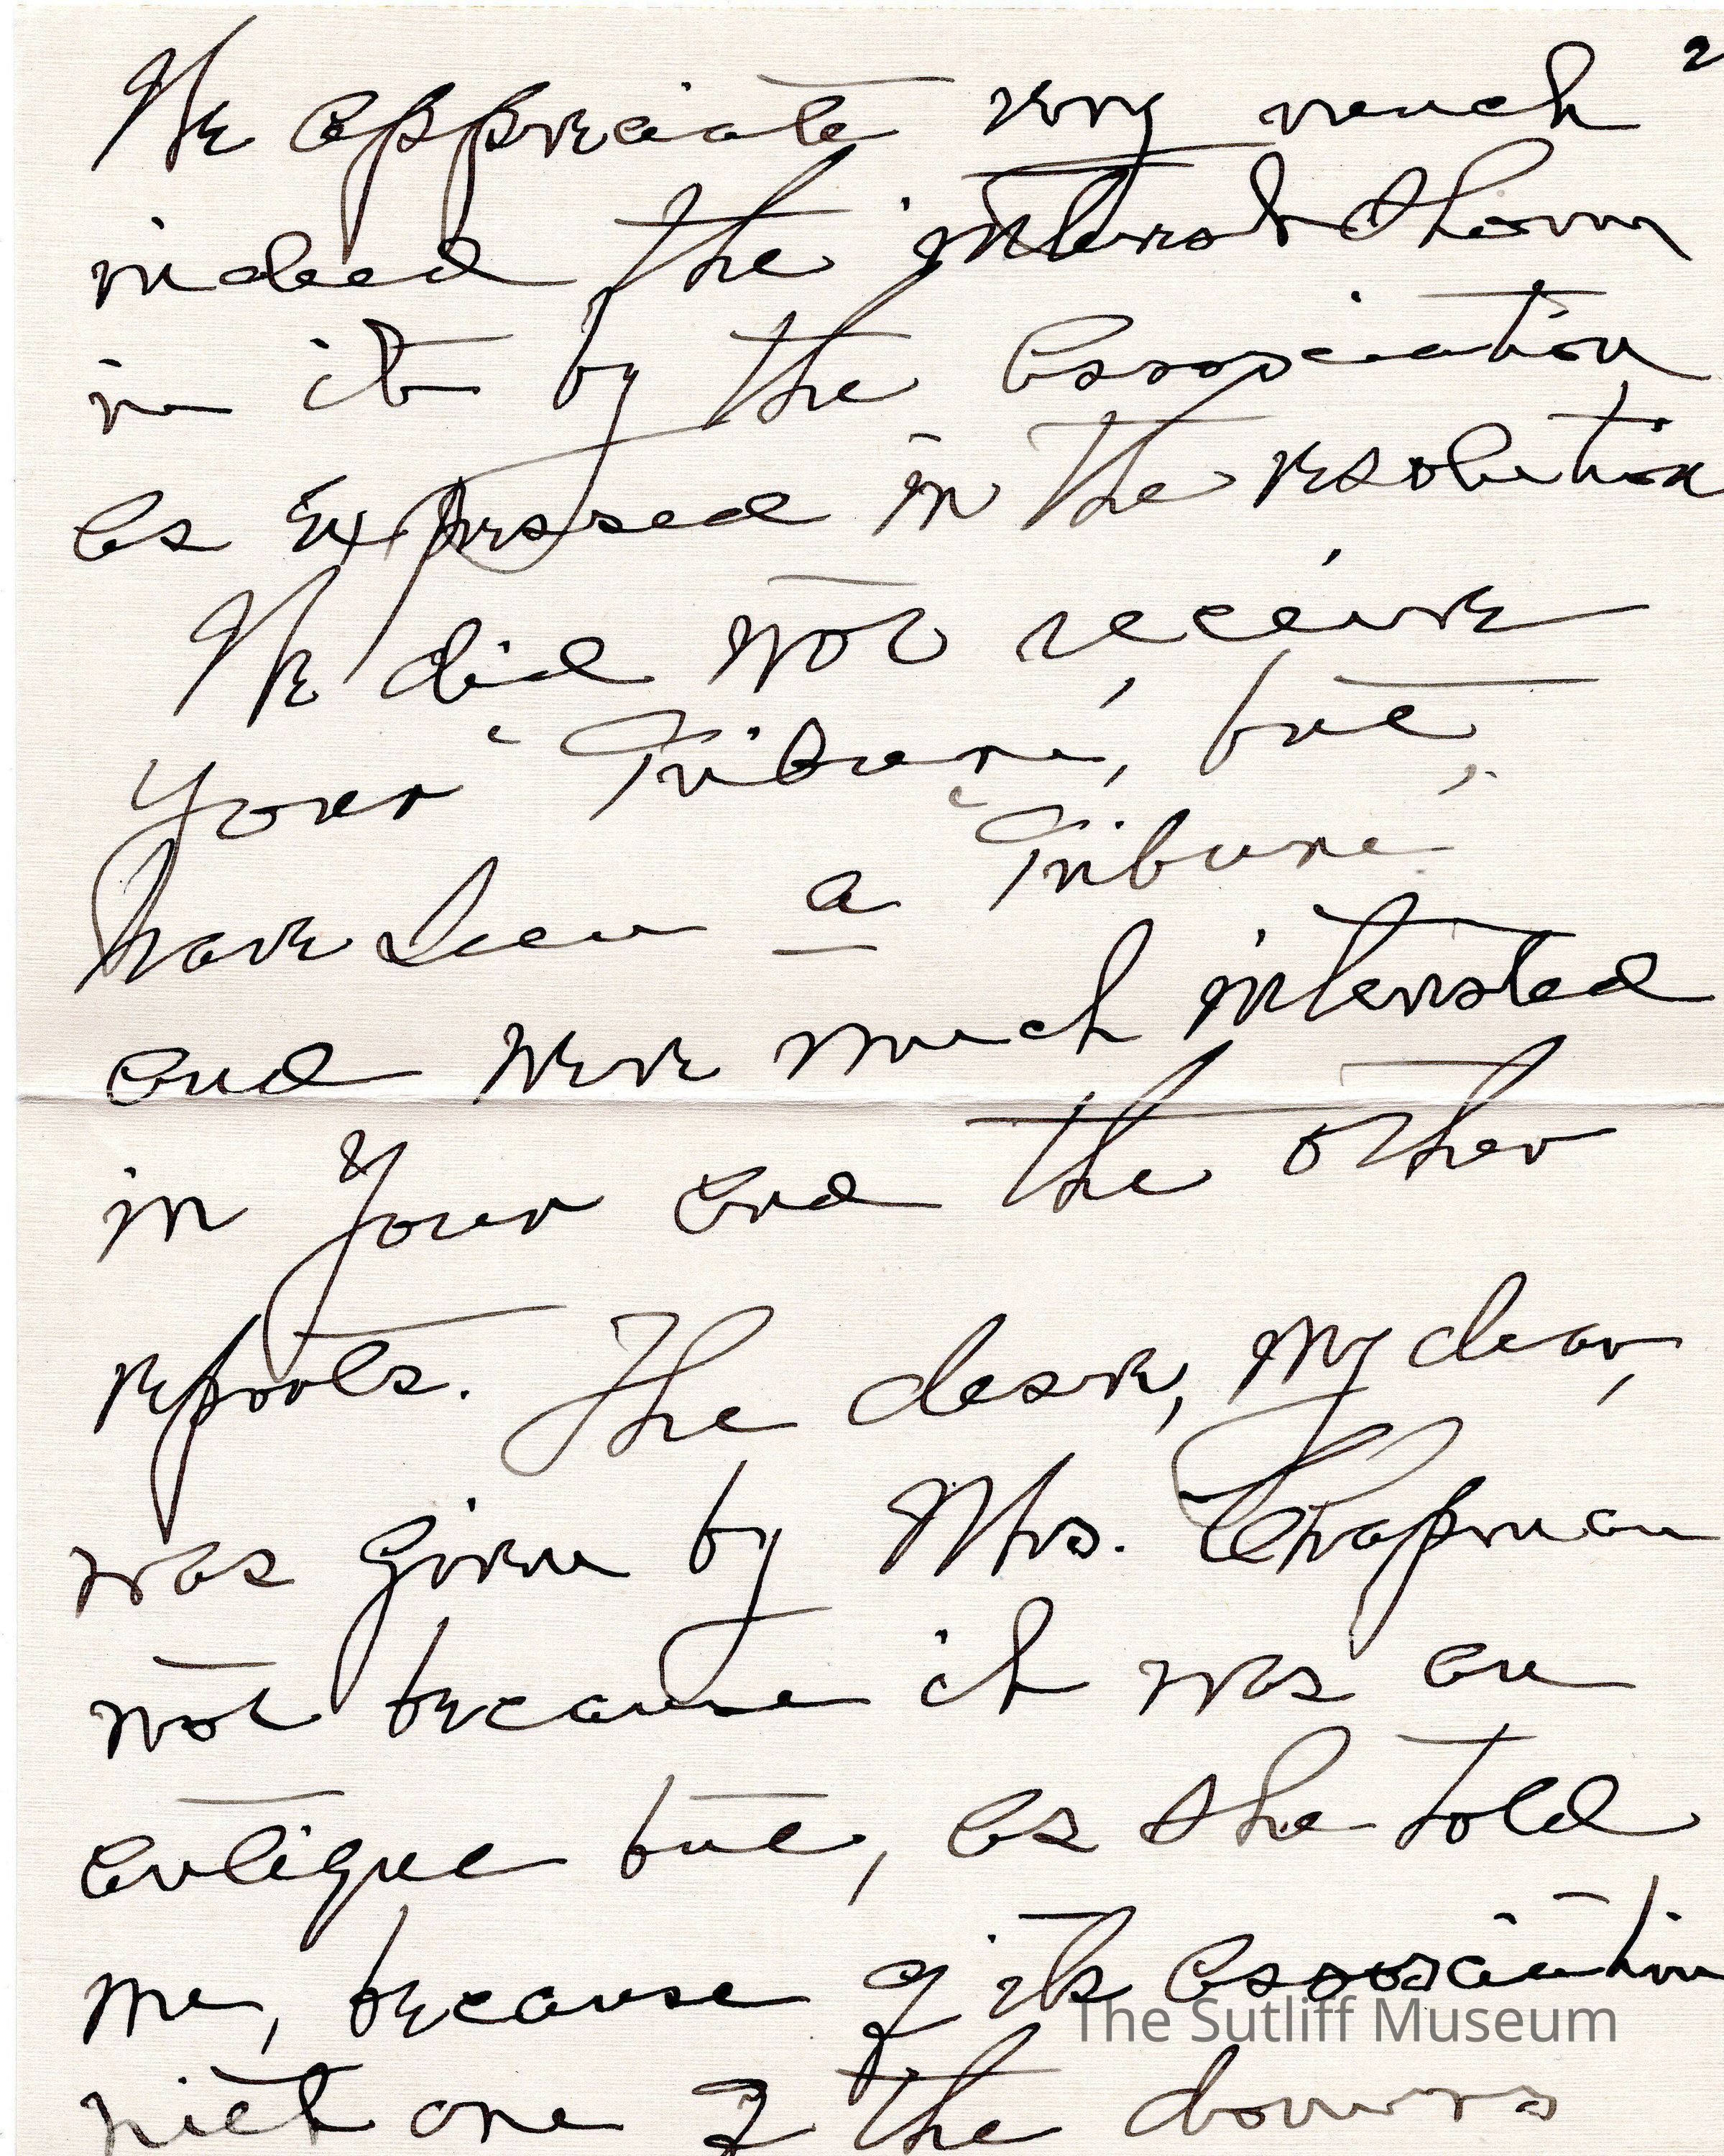 2
We appreciate very much
indeed the interest shown
in it by the Association
as expressed in the resolution.
We did not receive
your "Tribune", but,
have seen a "Tribune"
and were much interested
in your and the other
reports. The desk, my dear,
was given by Mrs. Chapman
not because it was an
antique but, as she told
me, because of its association
with one of the donors
The Sutliff Museum